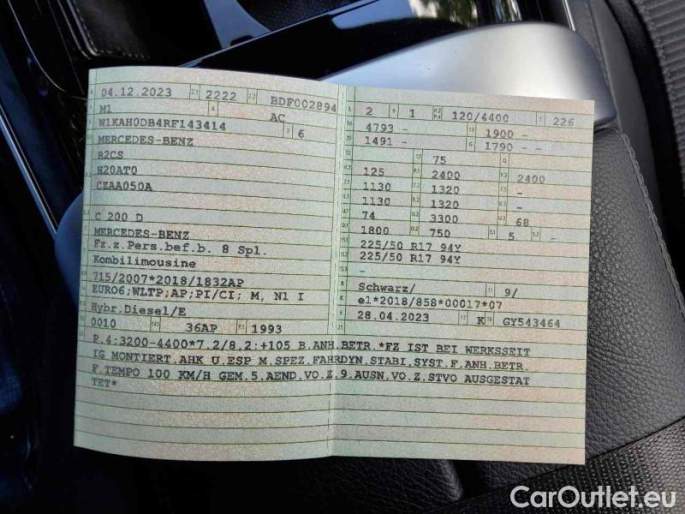 04.12.2023 2222 BDF002894
M1 AC
W1KAH0DB4RF143414 6
MERCEDES-BENZ
R2CS
H20AT0
CZAA050A
C 200 D
MERCEDES-BENZ
Fz.z.Pers.bef.b. 8 Spl.
Kombilimousine
715/2007*2018/1832AP
EURO6;WLTP;AP;PI/CI; M, N1 I
Hybr.Diesel/E
0010 36AP 1993
2 1 120/4400 226
4793 - 1900 -
1491 - 1790 - -
75
125 2400 2400
1130 1320 -
1130 1320 -
74 3300 68
1800 750 5 -
225/50 R17 94Y
225/50 R17 94Y
-
Schwarz/ 9/
e1*2018/858*00017*07
28.04.2023 K GY543464
P.4:3200-4400*7.2/8.2:+105 B.ANH.BETR.*FZ IST BEI WERKSSEIT
IG MONTIERT.AHK U.ESP M.SPEZ.FAHRDYN.STABI.SYST.F.ANH.BETR.
F.TEMPO 100 KM/H GEM.5.AEND.VO.Z.9.AUSN.VO.Z.STVO AUSGESTAT
TET*
CarOutlet.eu